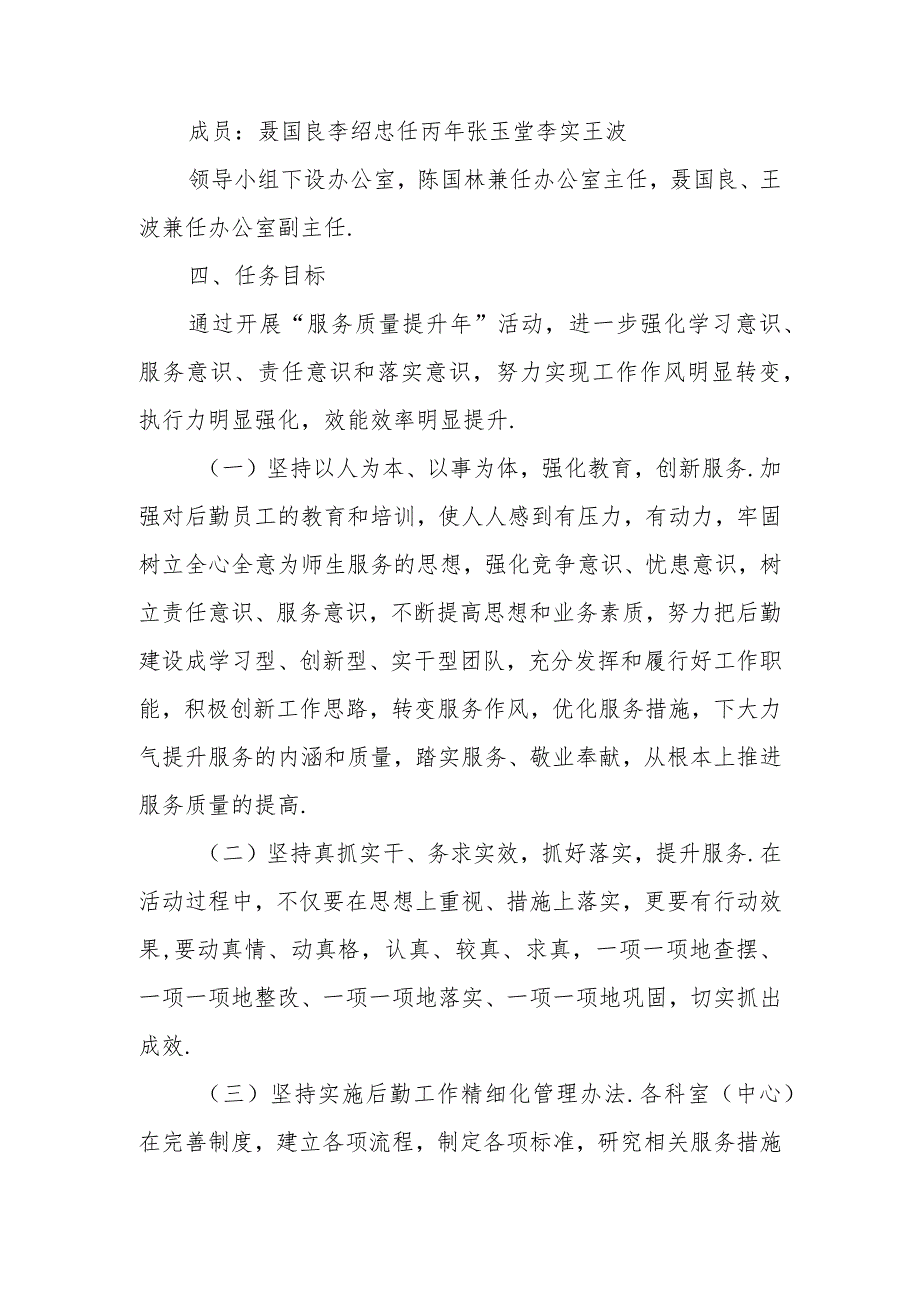 成员：聂国良李绍忠任丙年张玉堂李实王波
领导小组下设办公室，陈国林兼任办公室主任，聂国良、王
波兼任办公室副主任.
四、任务目标
通过开展“服务质量提升年”活动，进一步强化学习意识、
服务意识、责任意识和落实意识，努力实现工作作风明显转变，
执行力明显强化，效能效率明显提升.
（一）坚持以人为本、以事为体，强化教育，创新服务.加
强对后勤员工的教育和培训，使人人感到有压力，有动力，牢固
树立全心全意为师生服务的思想，强化竞争意识、忧患意识，树
立责任意识、服务意识，不断提高思想和业务素质，努力把后勤
建设成学习型、创新型、实干型团队，充分发挥和履行好工作职
能，积极创新工作思路，转变服务作风，优化服务措施，下大力
气提升服务的内涵和质量，踏实服务、敬业奉献，从根本上推进
服务质量的提高.
（二）坚持真抓实干、务求实效，抓好落实，提升服务.在
活动过程中，不仅要在思想上重视、措施上落实，更要有行动效
果,要动真情、动真格，认真、较真、求真，一项一项地查摆、
一项一项地整改、一项一项地落实、一项一项地巩固，切实抓出
成效.
（三）坚持实施后勤工作精细化管理办法.各科室（中心）
在完善制度，建立各项流程，制定各项标准，研究相关服务措施